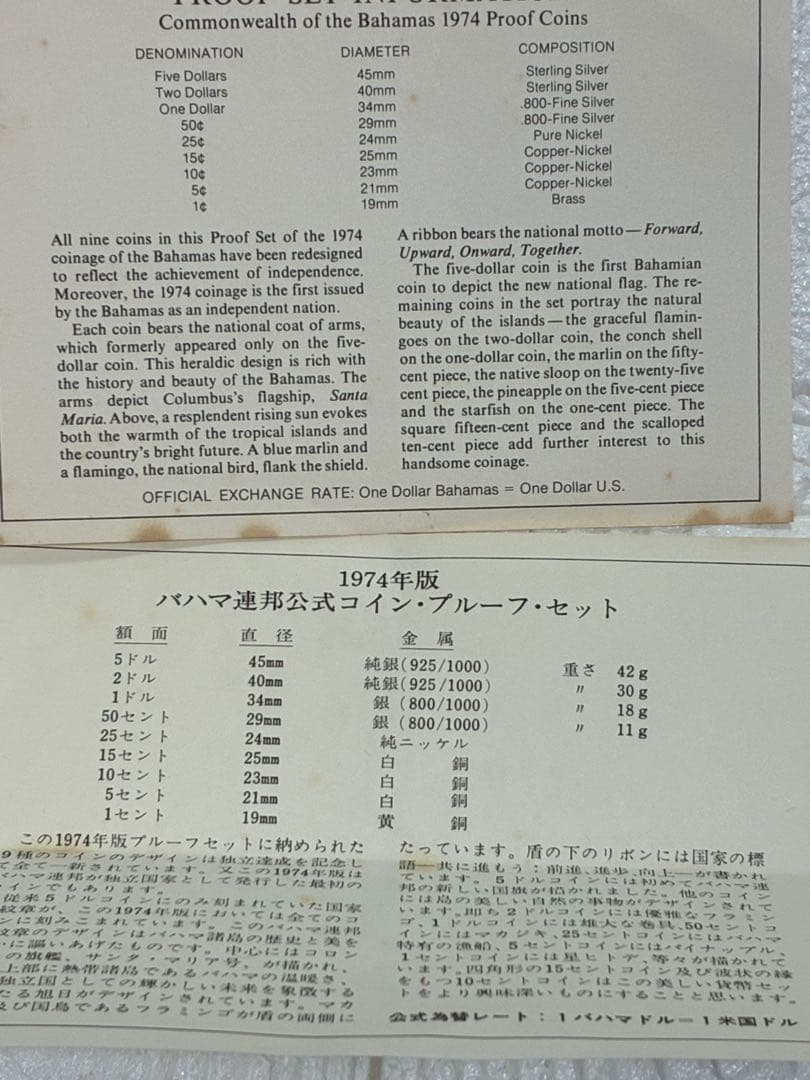 PROOF SET INFORMATION
Commonwealth of the Bahamas 1974 Proof Coins
DENOMINATION DIAMETER COMPOSITION
Five Dollars 45mm Sterling Silver
Two Dollars 40mm Sterling Silver
One Dollar 34mm .800-Fine Silver
50¢ 29mm .800-Fine Silver
25¢ 24mm Pure Nickel
15¢ 25mm Copper-Nickel
10¢ 23mm Copper-Nickel
5¢ 21mm Copper-Nickel
1¢ 19mm Brass
All nine coins in this Proof Set of the 1974
coinage of the Bahamas have been redesigned
to reflect the achievement of independence.
Moreover, the 1974 coinage is the first issued
by the Bahamas as an independent nation.
Each coin bears the national coat of arms,
which formerly appeared only on the five-
dollar coin. This heraldic design is rich with
the history and beauty of the Bahamas. The
arms depict Columbus's flagship, Santa
Maria. Above, a resplendent rising sun evokes
both the warmth of the tropical islands and
the country's bright future. A blue marlin and
a flamingo, the national bird, flank the shield.
A ribbon bears the national motto—Forward,
Upward, Onward, Together.
The five-dollar coin is the first Bahamian
coin to depict the new national flag. The re-
maining coins in the set portray the natural
beauty of the islands—the graceful flamin-
goes on the two-dollar coin, the conch shell
on the one-dollar coin, the marlin on the fifty-
cent piece, the native sloop on the twenty-five
cent piece, the pineapple on the five-cent piece
and the starfish on the one-cent piece. The
square fifteen-cent piece and the scalloped
ten-cent piece add further interest to this
handsome coinage.
OFFICIAL EXCHANGE RATE: One Dollar Bahamas = One Dollar U.S.
1974年版
バハマ連邦公式コイン・プルーフ・セット
額面 直径 金属
5ドル 45mm 純銀(925/1000) 重さ 42g
2ドル 40mm 純銀(925/1000) 〃 30g
1ドル 34mm 銀(800/1000) 〃 18g
50セント 29mm 銀(800/1000) 〃 11g
25セント 24mm 純ニッケル
15セント 25mm 白銅
10セント 23mm 白銅
5セント 21mm 白銅
1セント 19mm 黄銅
この1974年版プルーフセットに納められた
9種のコインのデザインは独立達成を記念し
て全て一新されています。又この1974年版は
バハマ連邦が独立国家として発行した最初の
インでもあります。
従来5ドルコインにのみ刻まれていた国家
紋章が、この1974年版においては全てのコ
ンに刻みこまれています。このバハマ連邦
紋章のデザインはバハマ諸島の歴史と美を
に謳いあげたものです。中心にはコロン
の旗艦、サンタ・マリア号、が描かれ、
上部に熱帯諸島であるバハマの温暖さ、
独立国としての輝かしい未来を象徴する
たる旭日がデザインされています。マカ
及び国鳥であるフラミンゴが盾の両側に
たっています。盾の下のリボンには国家の標
語—共に進もう：前進、進歩、向上—が書かれ
ています。5ドルコインには初めてバハマ連
邦の新しい国旗が描かれました。他のコイン
には島の美しい自然の事物がデザインされて
います。即ち2ドルコインには優雅なフラミン
ゴ、1ドルコインには雄大な巻貝、50セントコ
インにはマカジキ、25セントコインにはバハマ
特有の漁船、5セントコインにはパイナップル、
1セントコインには星ヒトデ、等々が描かれて
います。四角形の15セントコイン及び波状の縁
をもつ10セントコインはこの美しい貨幣セッ
トをより興味深いものにすることと思います。
公式為替レート：1バハマドル＝1米国ドル